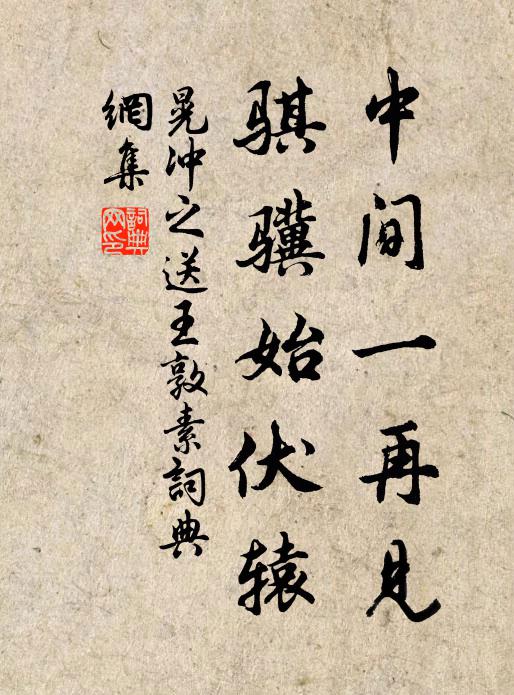 中间一再见
骐骥始伏辕
晁冲之送王敦素詞典
網集
詞典網印